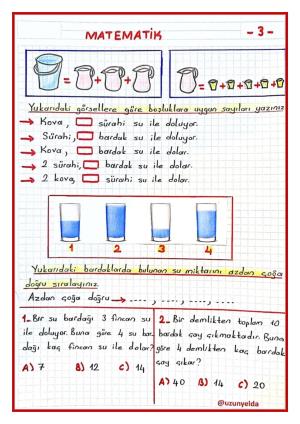 MATEMATİK
- 3 -
= + +
= + + + +
Yukarıdaki görsellere göre boşluklara uygun sayıları yazınız.
→ Kova, sürahi su ile doluyor.
→ Sürahi, bardak su ile doluyor.
→ Kova, bardak su ile dolar.
→ 2 sürahi, bardak su ile dolar.
→ 2 kova, sürahi su ile dolar.
1 2 3 4
Yukarıdaki bardaklarda bulunan su miktarını azdan çoğa
doğru sıralayınız.
Azdan çoğa doğru → ...., ...., ...., ....
1- Bir su bardağı 3 fincan su
ile doluyor. Buna göre 4 su bar
dağı kaç fincan su ile dolar?
A) 7 B) 12 C) 14
2- Bir demlikten toplam 10
bardak çay çıkmaktadır. Buna
göre 4 demlikten kaç bardak
çay çıkar?
A) 40 B) 14 C) 20
@uzunyelda